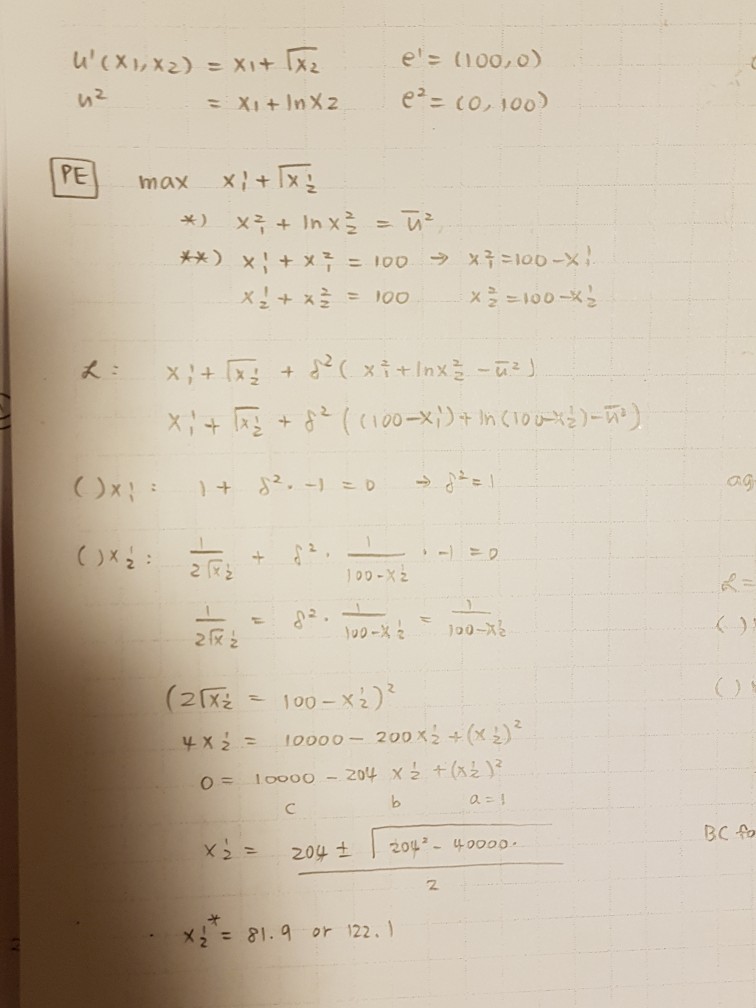 u'(x₁,x₂) = x₁ + √x₂ e' = (100,0)
u² = x₁ + ln x₂ e² = (0,100)
PE max x₁¹ + √x₂¹
*) x₁² + ln x₂² = ū²
**) x₁¹ + x₁² = 100 → x₁² = 100 - x₁¹
x₂¹ + x₂² = 100 x₂² = 100 - x₂¹
ℒ : x₁¹ + √x₂¹ + δ² ( x₁² + ln x₂² - ū² )
x₁¹ + √x₂¹ + δ² ( (100 - x₁¹) + ln (100 - x₂¹) - ū² )
( ) x₁¹ : 1 + δ² · -1 = 0 → δ² = 1
ag
( ) x₂¹ : 1/(2√x₂¹) + δ² · 1/(100 - x₂¹) · -1 = 0
ℒ =
1/(2√x₂¹) = δ² · 1/(100 - x₂¹) = 1/(100 - x₂¹)
( )
(2√x₂¹ = 100 - x₂¹)²
( )
4x₂¹ = 10000 - 200x₂¹ + (x₂¹)²
0 = 10000 - 204 x₂¹ + (x₂¹)²
c b a = 1
x₂¹ = (204 ± √(204² - 40000)) / 2
BC fo
x₂¹* = 81.9 or 122.1